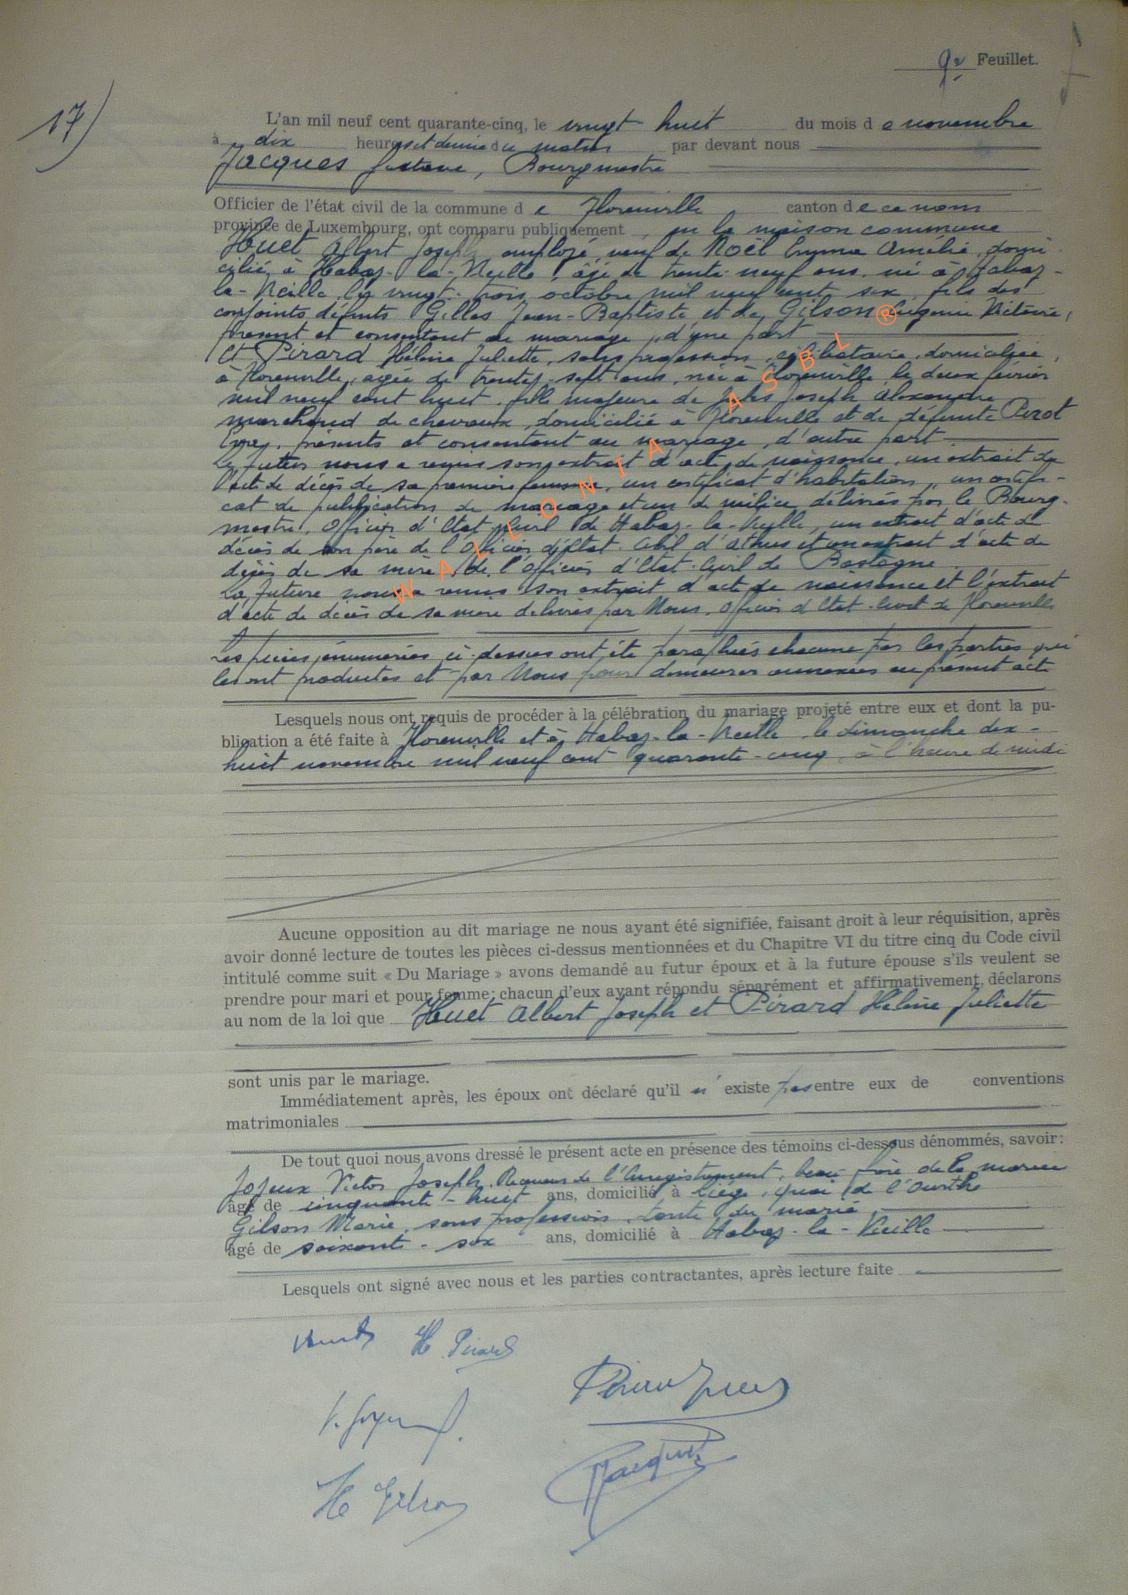 9e Feuillet.
17)
L'an mil neuf cent quarante-cinq, le vingt huit du mois de novembre
à dix heures et demie du matin par devant nous
Jacques Gustave, Bourgmestre
Officier de l'état civil de la commune de Florenville canton de ce nom
province de Luxembourg, ont comparu publiquement, en la maison commune
Huet Albert Joseph, employé, veuf de Noël Emma Amélie, domi-
cilié à Habay-la-Vieille, âgé de trente-neuf ans, né à Habay-
la-Vieille, le vingt-trois octobre mil neuf cent six, fils des
conjoints défunts Gilles Jean-Baptiste et de Gilson Eugénie Victoire,
présent et consentant au mariage, d'une part
Et Pirard Hélène Juliette, sans profession, célibataire, domiciliée,
à Florenville, âgée de trente-sept ans, née à Florenville, le deux février
mil neuf cent huit, fille majeure de Jules Joseph Alexandre
marchand de chevaux, domicilié à Florenville et de défunte Pirot
présents et consentant au mariage, d'autre part
Le futur nous a remis son extrait d'acte de naissance, un extrait de
l'acte de décès de sa première femme, un certificat d'habitation, un certifi-
cat de publication de mariage et un de milice délivrés par le Bourg-
mestre, Officier d'Etat-Civil de Habay-la-Vieille, un extrait d'acte de
décès de son père de l'Officier d'Etat-Civil d'Athus et un extrait d'acte de
décès de sa mère, de l'Officier d'Etat-Civil de Bastogne
La future nous a remis son extrait d'acte de naissance et l'extrait
d'acte de décès de sa mère délivrés par Nous, Officier d'Etat-Civil de Florenville
Les pièces énumérées ci-dessus ont été paraphées chacune par les parties qui
les ont produites et par Nous pour demeurer annexées au présent acte
Lesquels nous ont requis de procéder à la célébration du mariage projeté entre eux et dont la pu-
blication a été faite à Florenville et à Habay-la-Vieille le dimanche dix-
huit novembre mil neuf cent quarante-cinq, à l'heure de midi
Aucune opposition au dit mariage ne nous ayant été signifiée, faisant droit à leur réquisition, après
avoir donné lecture de toutes les pièces ci-dessus mentionnées et du Chapitre VI du titre cinq du Code civil
intitulé comme suit « Du Mariage » avons demandé au futur époux et à la future épouse s'ils veulent se
prendre pour mari et pour femme; chacun d'eux ayant répondu séparément et affirmativement, déclarons
au nom de la loi que Huet Albert Joseph et Pirard Hélène Juliette
sont unis par le mariage.
Immédiatement après, les époux ont déclaré qu'il n'existe pas entre eux de conventions
matrimoniales
De tout quoi nous avons dressé le présent acte en présence des témoins ci-dessous dénommés, savoir:
Joyeux Victor Joseph, Receveur de l'Enregistrement, beau-frère de la mariée
âgé de cinquante-huit ans, domicilié à Liège, quai de l'Ourthe
Gilson Marie, sans profession, tante du marié,
âgé de soixante-six ans, domicilié à Habay-la-Vieille
Lesquels ont signé avec nous et les parties contractantes, après lecture faite
H Pirard
H Gilson
WALLONIA ASBL ®